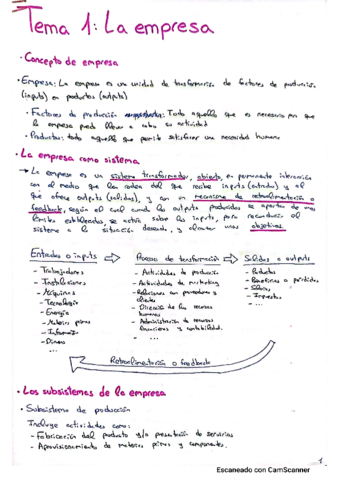 Tema 1: La empresa
· Concepto de empresa
· Empresa: La empresa es una unidad de transformación de factores de producción
(inputs) en productos (outputs)
· Factores de producción: Todo aquello que es necesario para que
la empresa pueda llevar a cabo su actividad
· Productos: todo aquello que permite satisfacer una necesidad humana
· La empresa como sistema
→ La empresa es un sistema transformador, abierto, en permanente interacción
con el medio que la rodea del que recibe inputs (entradas) y al
que ofrece outputs (salidas), y con un mecanismo de retroalimentación o
feedback, según el cual cuando los outputs producidos se apartan de unos
límites establecidos se actúa sobre los inputs, para reconducir el
sistema a la situación deseada, y alcanzar unos objetivos.
Entradas o inputs ⇒ Proceso de transformación ⇒ Salidas o outputs
- Trabajadores
- Instalaciones
- Máquinas
- Tecnología
- Energía
- Materias primas
- Información
- Dinero
...
- Actividades de producción
- Actividades de marketing
- Relaciones con proveedores y
clientes
- Dirección de los recursos
humanos
- Administración de recursos
financieros y contabilidad.
...
- Productos
- Beneficios o pérdidas
- Salarios
- Impuestos
...
Retroalimentación o feedback
· Los subsistemas de la empresa
· Subsistema de producción
Incluye actividades como:
- Fabricación del producto y/o prestación de servicios
- Aprovisionamiento de materias primas y componentes.
1
Escaneado con CamScanner